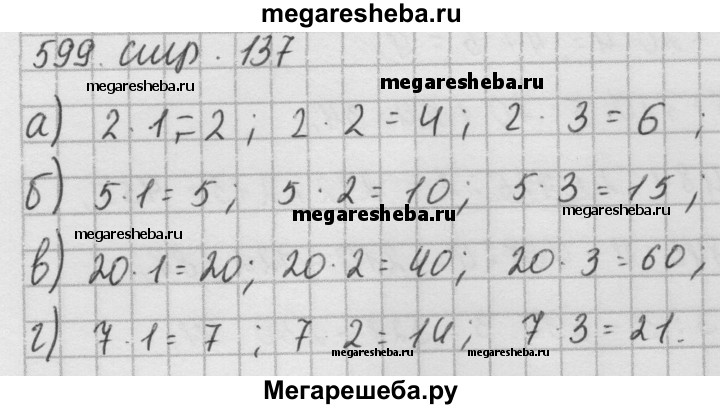 megaresheba.ru
599. стр. 137
megaresheba.ru megaresheba.ru
а) 2 · 1 = 2 ; 2 · 2 = 4 ; 2 · 3 = 6 ;
б) 5 · 1 = 5 ; 5 · 2 = 10 ; 5 · 3 = 15 ;
megaresheba.ru megaresheba.ru
megaresheba.ru
в) 20 · 1 = 20 ; 20 · 2 = 40 ; 20 · 3 = 60 ;
г) 7 · 1 = 7 ; 7 · 2 = 14 ; 7 · 3 = 21.
megaresheba.ru megaresheba.ru
Мегарешеба.ру